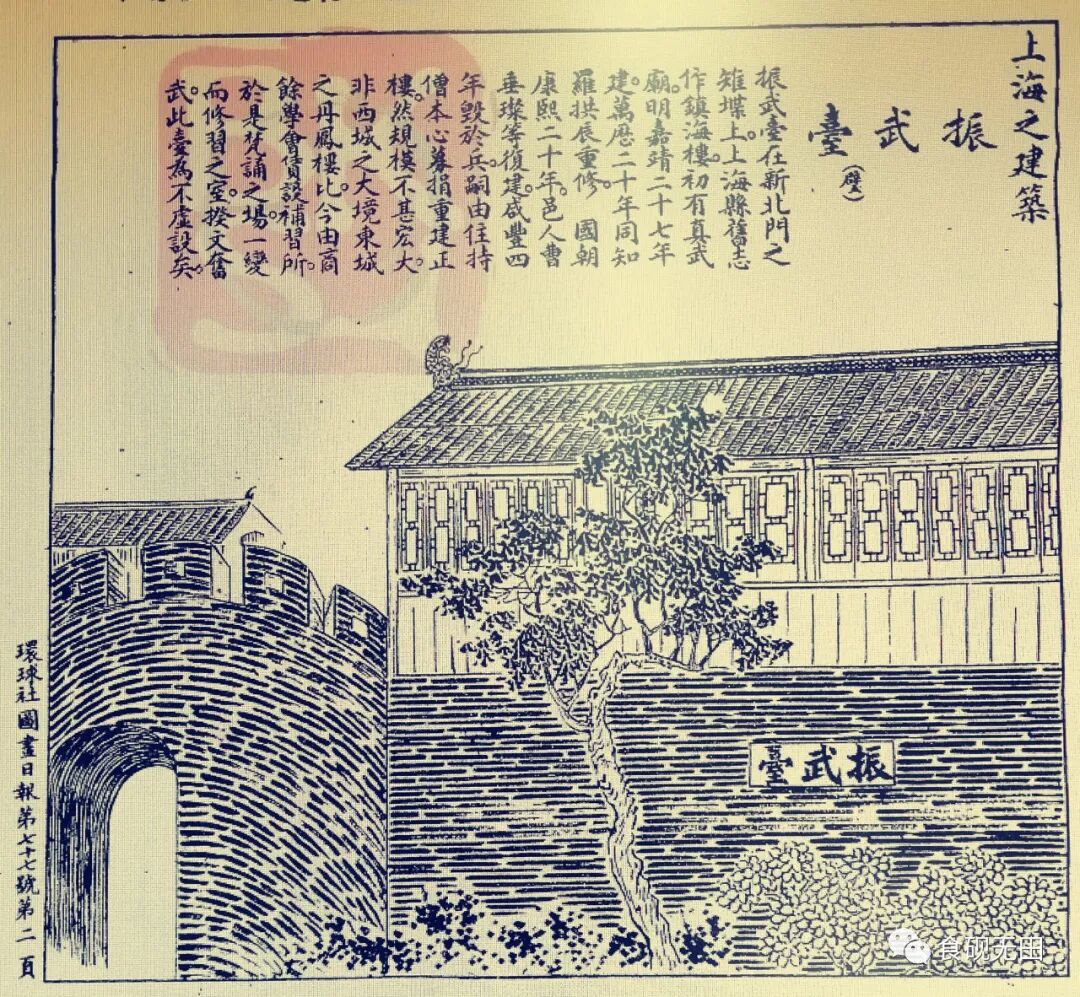 上海之建築
振武臺
(璧)
振武臺在新北門之
雉堞上。上海縣舊志
作鎮海樓。初有真武
廟。明嘉靖二十七年
建。萬歷二十年同知
羅拱辰重修。國朝
康熙二十年。邑人曹
垂璨等復建。咸豐四
年毀於兵。嗣由住持
僧本心募捐重建正
樓。然規模不甚宏大。
非西城之大境東城
之丹鳳樓比。今由商
餘學會賃設補習所。
於是梵誦之場。一變
而修習之室。揆文奮
武。此臺為不虛設矣。
振武臺
環球社圖畫日報第七十七號第二頁
食砚无田